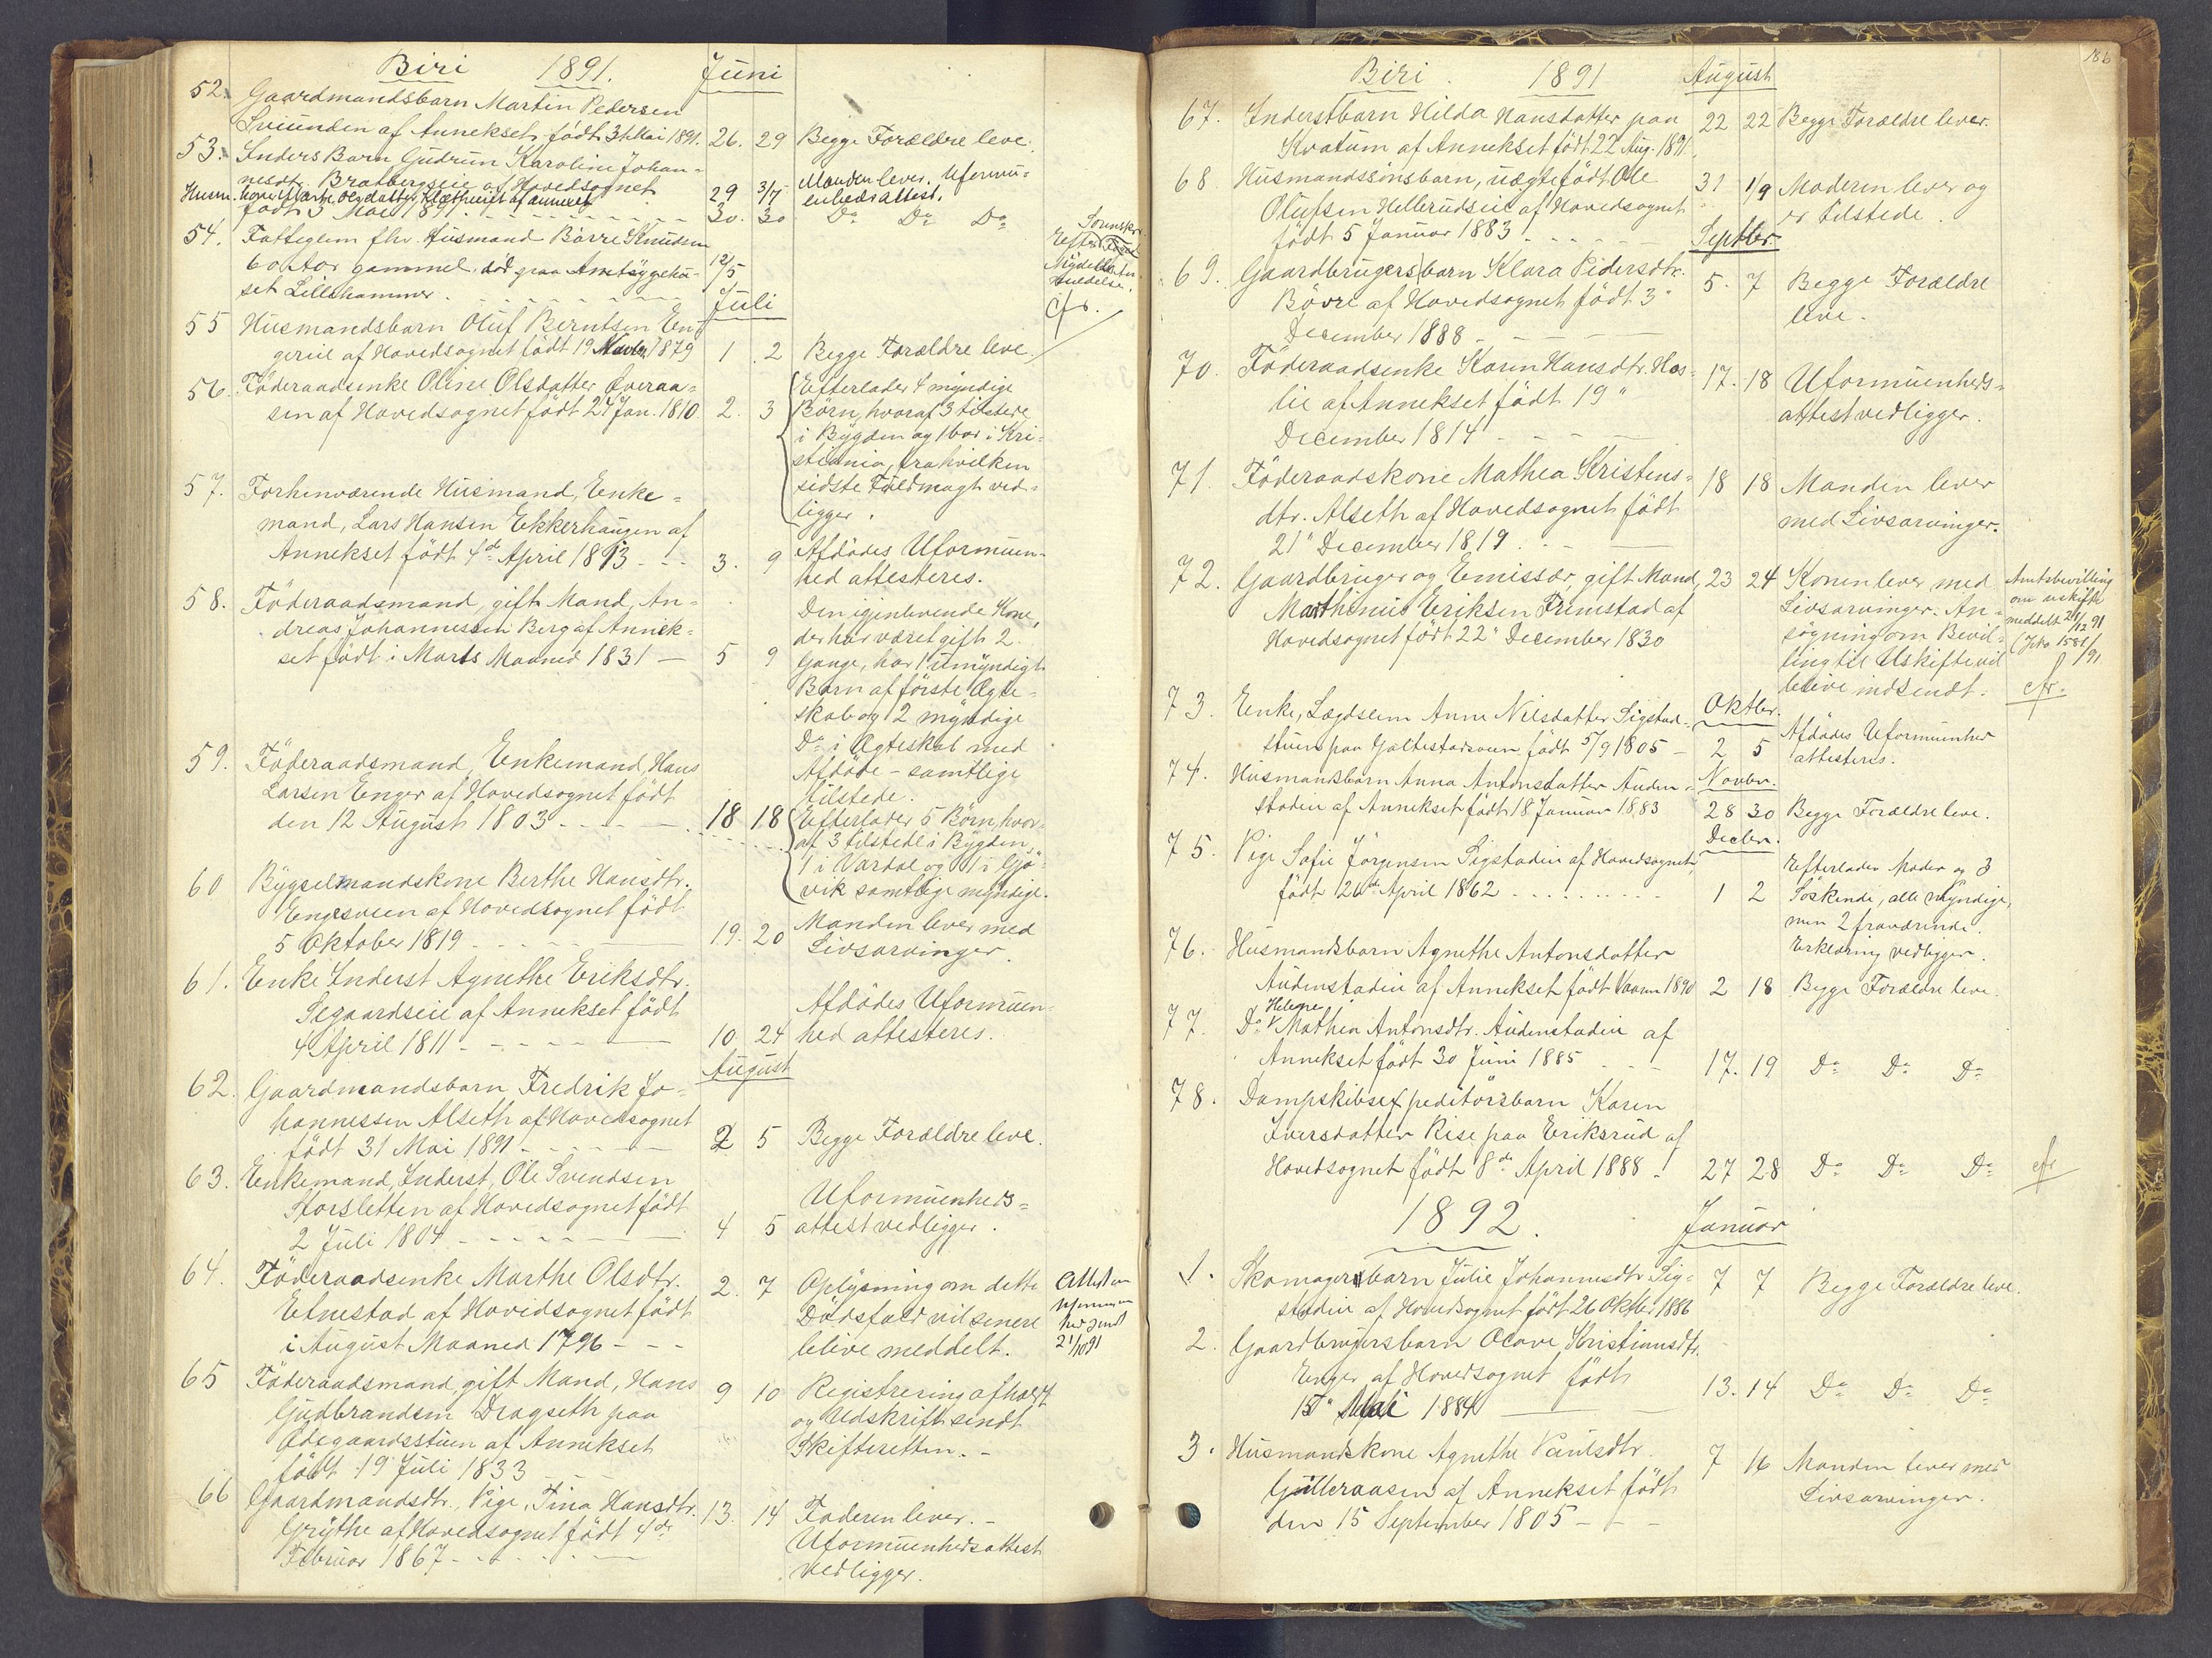 Biri 1891. Juni
52. Gaardmandsbarn Martin Pedersen
Sviunden af Annekset födt 31 Mai 1891. 26. 29 Begge Forældre leve.
53. Inders Barn Gudrun Karoline Johan-
nesdtr. Bratbergseie af Hovedsognet 29 3/7 Manden lever. Uformu-
enhedsattest.
Husm. kone Marthe Olsdatter af annexet
födt 3 Mai 1891 30. 30 Do Do Do
54. Fattiglem fhv. Husmand Börre Knudsen
60 Aar gammel död paa Amtsygehu- 12/5
set Lillehammer.
Sorenskr.
cfr.
Juli
55 Husmandsbarn Oluf Berntsen En-
gereie af Hovedsognet födt 19 Novbr 1879 1 2 Begge Forældre leve
56. Föderaadsenke Oline Olsdatter Överaa-
sen af Hovedsognet födt 27 Jan. 1810 2. 3
Efterlader 4 myndige
Börn, hvoraf 3 tilstede
i Bygden og 1 bor i Kri-
stiania, fra hvilken
sidste Fuldmagt ved-
ligger.
57. Forhenværende Husmand, Enke-
mand, Lars Hansen Ekkerhaugen af
Annekset födt 4de April 1813 - - - 3. 9 Afdödes Uformuen-
hed attesteres.
58. Föderaadsmand, gift Mand, An-
dreas Johannessen Berg af Annek-
set födt i Marts Maaned 1831 — 5 9
Den igjenlevende Kone,
der har været gift 2
Gange, har 1 umyndigt
Barn af förste Ægte-
skab og 2 myndige
Do i Ægteskab med
Afdöde - samtlige
tilstede.
59. Föderaadsmand, Enkemand, Hans
Larsen Enger af Hovedsognet födt
den 12 August 1803 - - - - 18 18
Efterlader 5 Börn, hvor-
af 3 tilstede i Bygden,
1 i Vardal og 1 i Gjö-
vik samtlige myndige.
60 Bygselmandskone Berthe Hansdtr.
Engesveen af Hovedsognet födt
5 Oktober 1819 - - - 19. 20 Manden lever med
Livsarvinger.
61. Enke Inderst Agnethe Eriksdtr.
Segaardseie af Annekset födt
4 April 1811 - - - - 10 24 Afdödes Uformuen-
hed attesteres.
August
62. Gaardmandsbarn Fredrik Jo-
hannessen Alseth af Hovedsognet
födt 31 Mai 1891 - - - - 2 5 Begge Forældre leve.
63. Enkemand, Inderst, Ole Svendsen
Storsletten af Hovedsognet födt
2 Juli 1804 - - - - 4 5 Uformuenheds-
attest vedligger.
64. Föderaadsenke Marthe Olsdtr.
Elnestad af Hovedsognet födt
i August Maaned 1796 - - - 2. 7 Oplysning om dette
Dödsfald vil senere
blive meddelt.
Attest om
hed sendt
21/10 91
65 Föderaadsmand, gift Mand, Hans
Gudbrandsen Dragseth paa
Ödegaardsstuen af Annekset
födt 19 Juli 1833 9 10 Registrering afholdt
og Udskrift sendt
Skifteretten. -
66 Gaardmandsdtr., Pige, Tina Hansdtr.
Grythe af Hovedsognet födt 4de
Februar 1867 - - - - 13. 14 Faderen lever. -
Uformuenhedsattest
vedligger.
186
Biri. 1891 August
67. Inderstbarn Hilda Hansdatter paa
Kvatum af Annekset födt 22 Aug. 1891. 22 22 Begge Forældre lever.
68 Husmandssönsbarn, uægtefödt Ole
Olufsen Hellerudseie af Hovedsognet
födt 5 Januar 1883 - - - - 31 1/9 Moderen lever og
er tilstede.
Septbr.
69. Gaardbrugersbarn Klara Pedersdtr.
Bövre af Hovedsognet födt 3"
December 1888 - - - 5. 7 Begge Forældre
leve.
70. Föderaadsenke Karen Hansdtr. Has-
lie af Annekset födt 19"
December 1814 - - - 17. 18 Uformuenheds-
attest vedligger.
71. Föderaadskone Mathea Kristens-
dtr. Alseth af Hovedsognet födt
21" December 1819. - - 18 18 Manden lever
med Livsarvinger.
72. Gaardbruger og Emissær, gift Mand,
Marthinus Eriksen Frimstad af
Hovedsognet födt 22" December 1830 23 24 Konen lever med
Livsarvinger. An-
sögning om Bevil-
ling til Uskifte vil
blive indsendt.
Amtsbevilling
om uskifte
meddelt 21/12 91
cfr.
Oktbr.
73. Enke, Lægdslem Anne Nilsdatter Sigstad-
stuen paa Galtestadsveen födt 5/9 1805 - 2 5 Afdödes Uformuenhed
attesteres.
Novbr.
74. Husmandsbarn Anna Antonsdatter Auden-
stadeie af Annekset födt 18 Januar 1883 28 30 Begge Forældre leve.
Decbr.
75. Pige Sofie Jörgensen Sigstadeie af Hovedsognet,
födt 26de April 1862 - - - - 1 2 Efterlader Moder og 3
Söskende, alle myndige,
men 2 fraværende.
Erklæring vedligger.
76. Husmandsbarn Agnethe Antonsdatter
Audenstadeie af Annekset födt Vaaren 1890 2 18 Begge Forældre leve.
77. Do Helene Mathea Antonsdtr. Audenstadeie af
Annekset födt 30 Juni 1885 - - - 17. 19 Do Do Do
78. Dampskibsexpeditörsbarn Karen
Iversdatter Rise paa Eriksrud af
Hovedsognet födt 8de April 1888. 27 28 Do Do Do cfr
1892. Januar
1. Skomagersbarn Julie Johannesdtr Sig-
stadeie af Hovedsognet födt 26 Oktbr. 1886 7 7 Begge Forældre leve.
2. Gaardbrugersbarn Olave Kristiansdtr.
Enger af Hovedsognet födt
15" Mai 1884 — 13. 14 Do Do Do
3. Husmandskone Agnethe Paulsdtr.
Gulleraasen af Annekset födt
den 15 September 1805 - - - 7 16 Manden lever med
Livsarvinger.